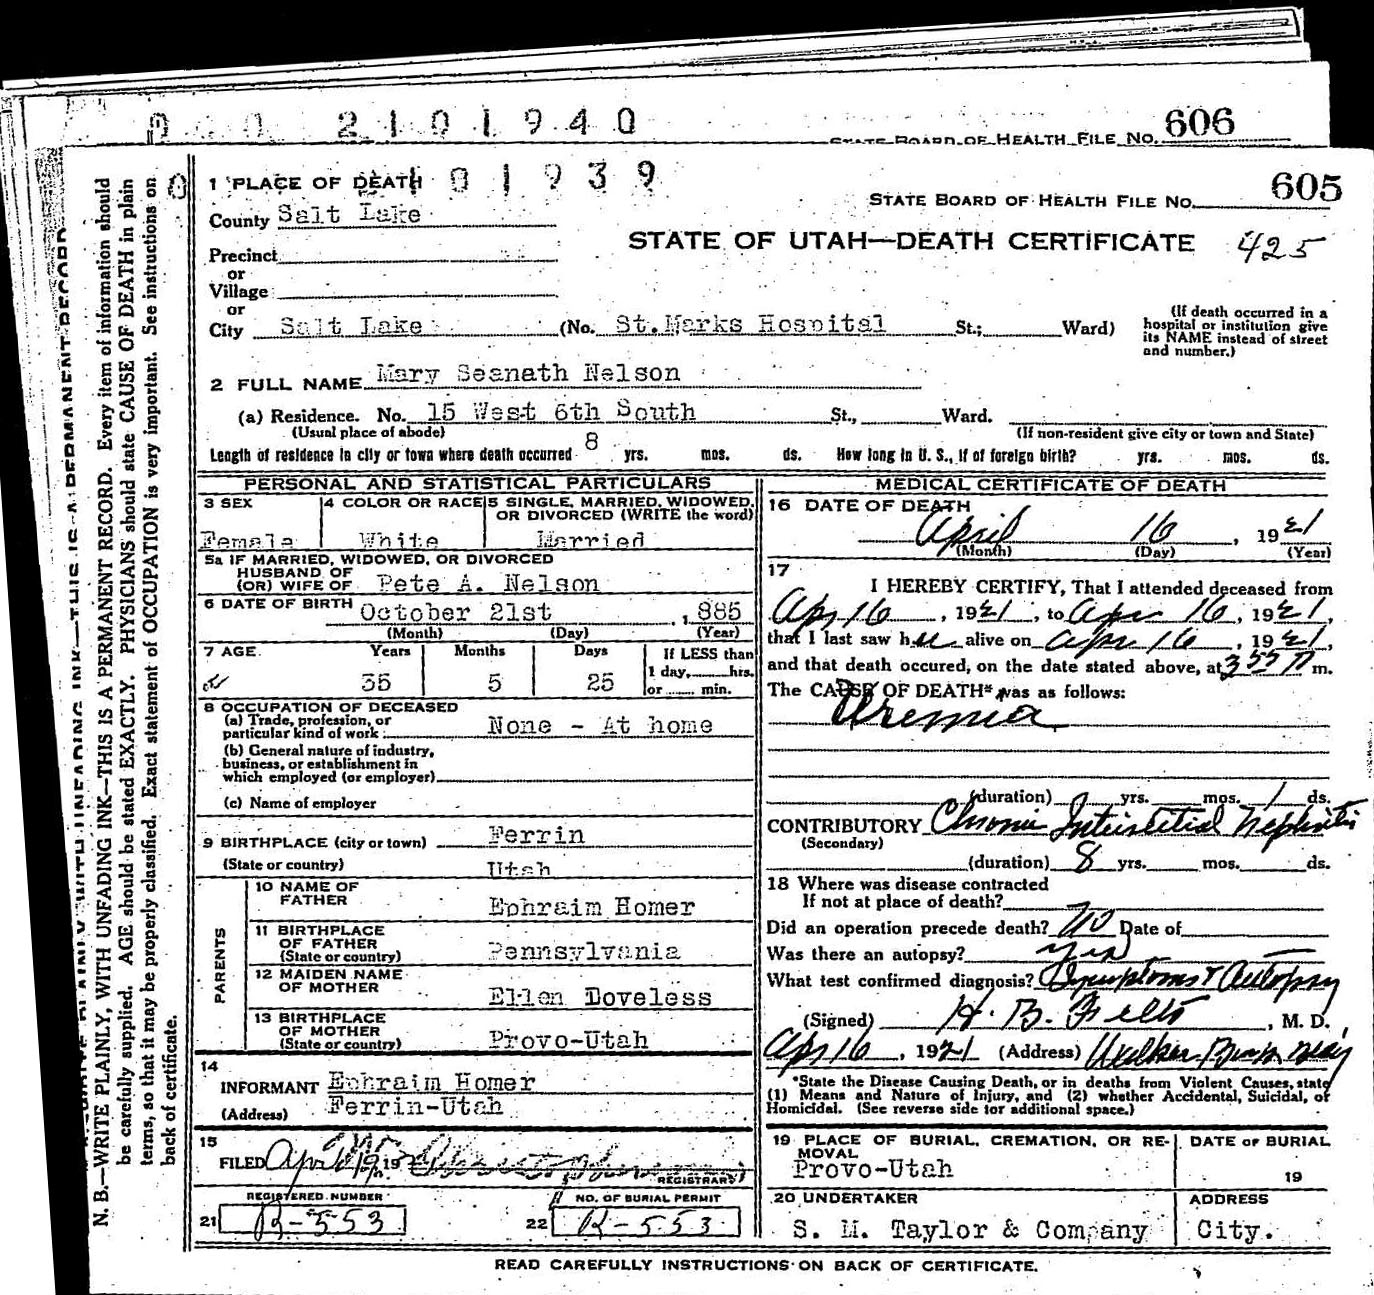 2101940
STATE BOARD OF HEALTH FILE NO. 606
01939
605
STATE BOARD OF HEALTH FILE NO.
1 PLACE OF DEATH
County Salt Lake
STATE OF UTAH—DEATH CERTIFICATE 425
Precinct
or
Village
or
City Salt Lake (No. St.Marks Hospital St.; Ward)
(If death occurred in a hospital or institution give its NAME instead of street and number.)
2 FULL NAME Mary Seanath Nelson
(a) Residence. No. 15 West 6th South St., Ward.
(Usual place of abode) (If non-resident give city or town and State)
Length of residence in city or town where death occurred 8 yrs. mos. ds. How long in U. S., if of foreign birth? yrs. mos. ds.
PERSONAL AND STATISTICAL PARTICULARS
3 SEX 4 COLOR OR RACE 5 SINGLE, MARRIED, WIDOWED, OR DIVORCED (WRITE the word)
Female White Married
5a IF MARRIED, WIDOWED, OR DIVORCED
HUSBAND OF
(OR) WIFE OF Pete A. Nelson
6 DATE OF BIRTH October 21st , 885
(Month) (Day) (Year)
7 AGE Years Months Days If LESS than
1 day, hrs.
35 5 25 or min.
8 OCCUPATION OF DECEASED
(a) Trade, profession, or
particular kind of work None - At home
(b) General nature of industry,
business, or establishment in
which employed (or employer)
(c) Name of employer
9 BIRTHPLACE (city or town) Ferrin
(State or country) Utah
PARENTS
10 NAME OF
FATHER Ephraim Homer
11 BIRTHPLACE
OF FATHER
(State or country) Pennsylvania
12 MAIDEN NAME
OF MOTHER Ellen Loveless
13 BIRTHPLACE
OF MOTHER
(State or country) Provo-Utah
14
INFORMANT Ephraim Homer
(Address) Ferrin-Utah
15
FILED Apr 19
REGISTRAR
REGISTERED NUMBER NO. OF BURIAL PERMIT
21 B-553 22 B-553
MEDICAL CERTIFICATE OF DEATH
16 DATE OF DEATH
April 16 , 1921
(Month) (Day) (Year)
17
I HEREBY CERTIFY, That I attended deceased from
Apr 16 , 1921, to Apr 16, 1921,
that I last saw her alive on Apr 16, 1921,
and that death occured, on the date stated above, at 3 55 P m.
The CAUSE OF DEATH* was as follows:
Uremia
(duration) yrs. mos. 1 ds.
CONTRIBUTORY Chronic Interstitial Nephritis
(Secondary)
(duration) 8 yrs. mos. ds.
18 Where was disease contracted
If not at place of death?
Did an operation precede death? No Date of
Was there an autopsy? yes
What test confirmed diagnosis? Symptoms & Autopsy
(Signed) H. B. Felts , M. D.
Apr 16 , 1921 (Address) Walker Bank Bldg
*State the Disease Causing Death, or in deaths from Violent Causes, state
(1) Means and Nature of Injury, and (2) whether Accidental, Suicidal, or
Homicidal. (See reverse side for additional space.)
19 PLACE OF BURIAL, CREMATION, OR REMOVAL DATE OF BURIAL
Provo-Utah 19
20 UNDERTAKER ADDRESS
S. M. Taylor & Company City.
READ CAREFULLY INSTRUCTIONS ON BACK OF CERTIFICATE.
N. B.—WRITE PLAINLY, WITH UNFADING INK—THIS IS A PERMANENT RECORD. Every item of information should
be carefully supplied. AGE should be stated EXACTLY. PHYSICIANS should state CAUSE OF DEATH in plain
terms, so that it may be properly classified. Exact statement of OCCUPATION is very important. See instructions on
back of certificate.